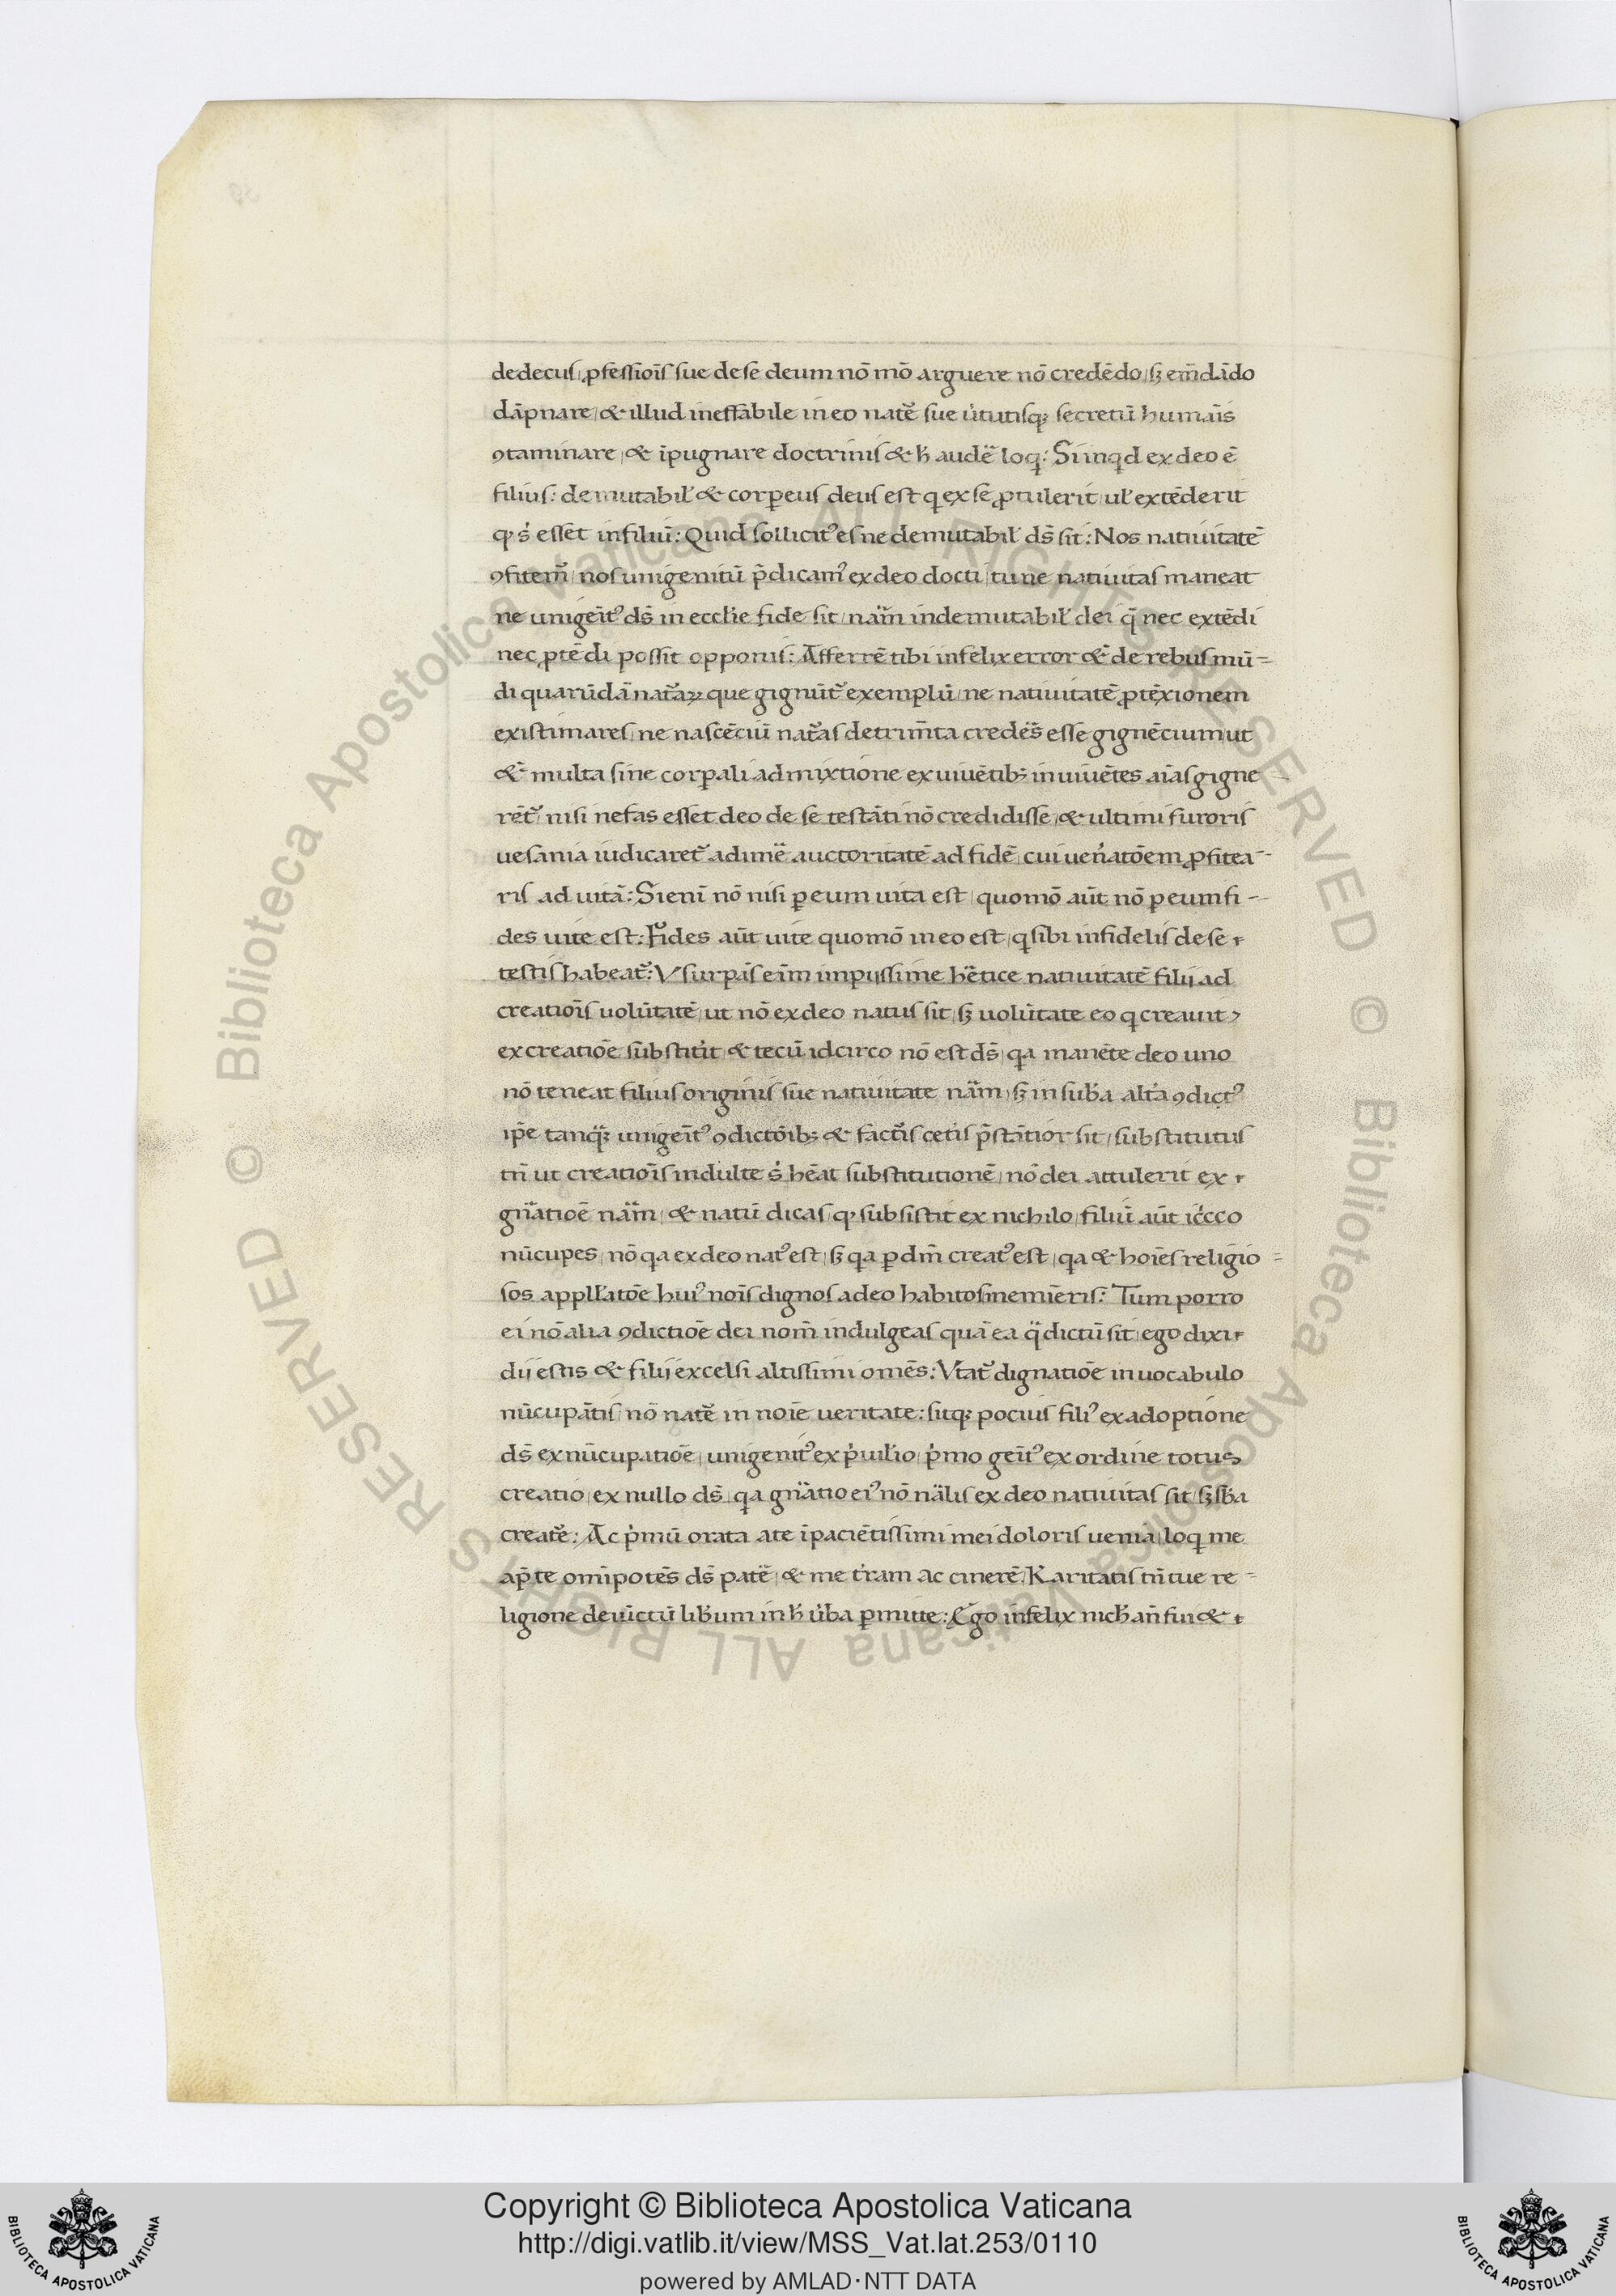 dedecus, ꝓfessiōis sue de se deum nō mō arguere nō credēdo, sꝫ em̄dādo
dāpnare, & illud ineffabile in eo nate᷑ sue u̓tutisqꝫ secretū humāis
ꝯtaminare, & īpugnare doctrinis & h̄ aude᷑ loqꝫ: Si inqͥd ex deo ē
filius: demutabil̓ & corꝑeus deus est qͥ ex se ꝓtulerit, ul̓ extēderit
qͦ s̓ esset in filiū: Quid sollicitꝰ es ne demutabil̓ ds̄ sit: Nos natiuitatē
ꝯfitem᷑, nos unigenitū p̄dicamꝰ ex deo docti, tu ne natiuitas maneat
ne unigēitꝰ ds̄ in eccl̓ie fide sit, na᷑m indemutabil̓ dei q̄ nec extēdi
nec ꝓtēdi possit opponis: Afferrē tibi infelix error & de rebus mū=
di quarūdā nat᷑aꝝ que gignūt᷑ exemplū, ne natiuitatē ꝓtēxionem
existimares, ne nascēciū nat᷑as detrim̄ta crede᷑s esse gignēcium ut
& multa sine corꝑali admixtione ex uiuētibꝫ in uiuētes aīas gigne
rēt᷑, nisi nefas esset deo de se testāti nō credidisse, & ultimi furoris
uesania iudicaret᷑ adime᷑ auctoritatē ad fidē, cui uen̓atōem ꝓfitea-
ris ad uitā: Si enī nō nisi ꝑ eum uita est, quomō aūt nō ꝑ eum fi-
des uite est: Fides aūt uite quomō in eo est, qͥ sibi infidelis de se
testis habeat᷑: Vsurpās eīm impiissime he᷑tice natiuitatē filij ad
creatiōis uolūtatē, ut nō ex deo natus sit, sꝫ uolūtate eo qͥ creauit
ex creatiōe substitit, & tecū idcirco nō est ds̄, qͣ manēte deo uno
nō teneat filius originis sue natiuitate na᷑m, sꝫ in sub̓a alt̓a ꝯdictꝰ
ip̄e tanqͣꝫ unigēitꝰ ꝯdictōibꝫ & fact᷑is cet̓is p̄stātior sit, substitutus
tn̄ ut creatiōis indulte s̓ hēat substitutionē, nō dei attulerit ex
gn̄atioē na᷑m, & natū dicas, qͦ subsistit ex nichilo, filiū aūt ic̓cco
nūcupes, nō qͣ ex deo natꝰ est, sꝫ qͣ ꝑ dm̄ creatꝰ est, qͣ & hoīes religio=
sos appll̓atōe huiꝰ noīs dignos a deo habitos memīeris: Tum porro
ei nō alia ꝯdictiōe dei nom̄ indulgeas quā ea qͣ dictū sit, ego dixi
dij estis & filij excelsi altissimi omēs: Vtat᷑ dignatiōe in uocabulo
nūcupātis, nō nate᷑ in noīe ueritate: sitqꝫ pocius filiꝰ ex adoptione
ds̄ ex nūcupatiōe, unigenitꝰ ex p̓uil̓io, p̓mo gēitꝰ ex ordine totus
creatio, ex nullo ds̄, qͣ gn̄atio eiꝰ nō na᷑lis ex deo natiuitas sit, sꝫ sb̓a
creat᷑e: Ac p̓mū orata a te īpaciētissimi mei doloris uenia, loqͥ me
ap̄ te omīpotēs ds̄ pate᷑, & me t̓ram ac cinerē, K̓aritatis tn̄ tue re=
ligione deuictū lib̓um in h̄ u̓ba ꝑmitte: Ego infelix nich̓ an̄ fui &